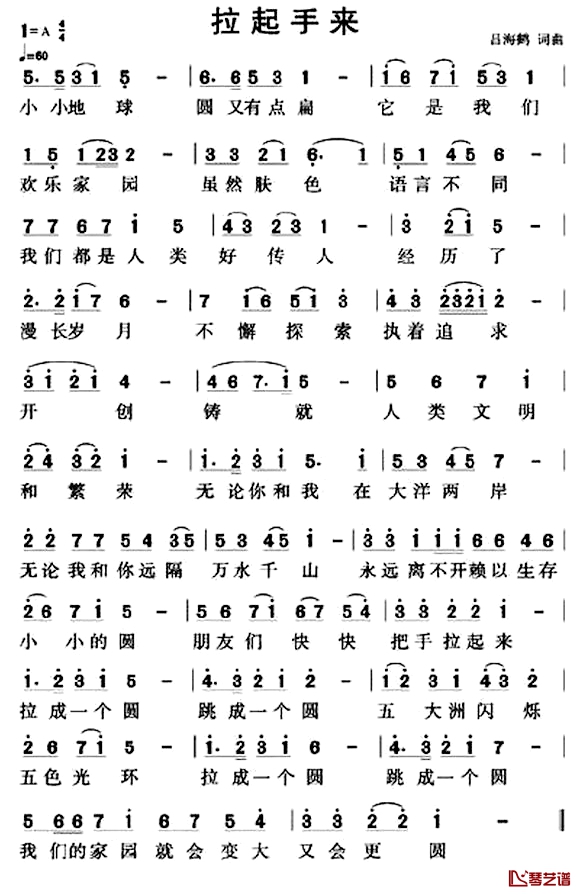 拉起手来
1=A 4/4
♩=60
吕海鹤 词曲
5. 5 3 1 5 - | 6. 6 5 3 1 - | 1 6 7 1 5 3 1 |
小 小地 球 圆 又有点 扁 它 是 我 们
1 5 1 2 3 2 - | 3 3 2 1 6. 1 | 5 1 4 5 6 - |
欢乐家园 虽然肤色 语言不同
7 7 6 7 1 5 | 4 3 2 3 1 - | 3 2 1 5 - |
我们都是人类好传人 经历了
2. 2 1 7 6 - | 7 1 6 5 1 3 | 4 3 2 3 2 1 2 |
漫长岁月 不懈探索执着追求
3 1 2 1 4 - | 4 6 7. 1 5 - | 5 6 7 1 |
开创铸就人类文明
2 4 3 2 1 - | 1. 2 3 1 5. 1 | 5 3 4 5 7 - |
和繁荣 无论你和我 在大洋两岸
2 2 7 7 5 4 3 5 | 5 3 4 5 1 - | 3 3 1 1 1 6 6 4 6 |
无论我和你远隔 万水千山 永远离不开赖以生存
2 6 7 1 5 - | 5 6 7 1 6 7 5 4 | 3 3 2 2 1 - |
小小的圆 朋友们快快 把手拉起来
1. 2 3 1 5 - | 4. 3 2 1 2 - | 1 2 3 1 4 3 |
拉成一个圆 跳成一个圆 五大洲闪烁
2 6 7 1 5 - | 1. 2 3 1 5 - | 4. 3 2 1 - |
五色光环 拉成一个圆 跳成一个圆
5 6 6 7 1 6 7 5 4 | 3 3 2 2 1 - ‖
我们的家园就会变大 又会更圆
琴艺谱